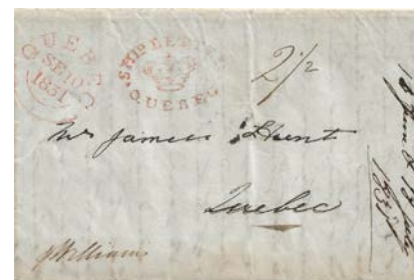 QUEBEC
SE 10
1831
SHIP LETTER
QUEBEC
2½
Mr James Hunt
Quebec
pWilliam
1831